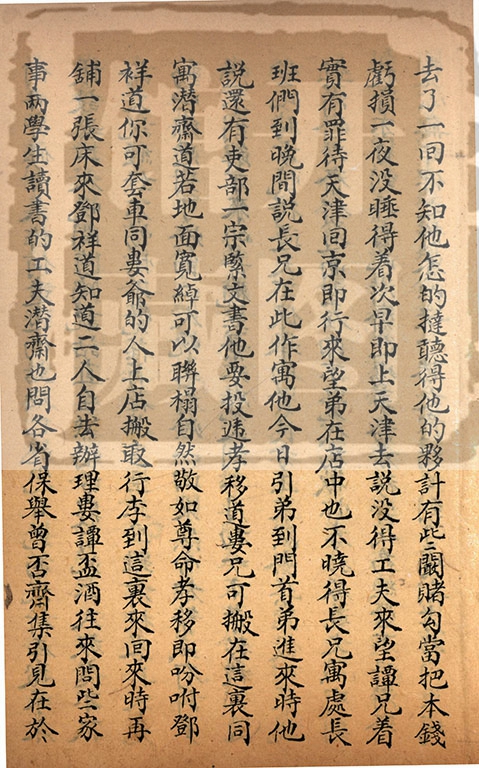 去了一回不知他怎的撻聽得他的夥計有些闝賭勾當把本錢
虧損一夜没睡得着次早即上天津去説没得工夫來望譚兄着
實有罪待天津回京即行來望弟在店中也不曉得長兄寓處長
班們到晚間説長兄在此作寓他今日引弟到門首弟進來時他
説還有吏部一宗緊文書他要投遞孝移道婁兄可搬在這裏同
寓潜齋道若地面寬綽可以聨榻自然敬如尊命孝移即吩咐鄧
祥道你可套車同婁爺的人上店搬取行李到這裏來回來時再
舖一張床來鄧祥道知道二人自去辦理婁譚盃酒往來問些家
事兩學生讀書的工夫潜齋也問各省保舉曾否齊集引見在於